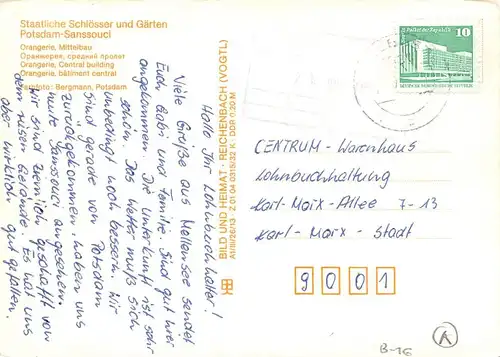 Staatliche Schlösser und Gärten
Potsdam-Sanssouci
Orangerie, Mittelbau
Оранжерея, средний портал
Orangerie, Central building
Orangerie, bâtiment central
Farbfoto: Bergmann, Potsdam
Hallo Ihr Lohnbuchhalter!
Viele Grüße aus Mellensee sendet
Euch, Gabi und Familie. Sind gut hier
angekommen. Die Unterkunft ist sehr
schön. Das Wetter muß sich
unbedingt noch bessern. Wir
sind gerade von Potsdam
zurückgekommen, haben uns
Sanssouci angesehen.
Wir sind ziemlich geschafft von
dem riesen Gelände. Es hat uns
aber wirklich gut gefallen.
BILD UND HEIMAT · REICHENBACH (VOGTL)
A1/III/26/13 Z 01 04 0315/32 K DDR 0,20 M
10
CENTRUM - Warenhaus
Lohnbuchhaltung
Karl-Marx-Allee 7-13
Karl-Marx-Stadt
9001
B-16
A